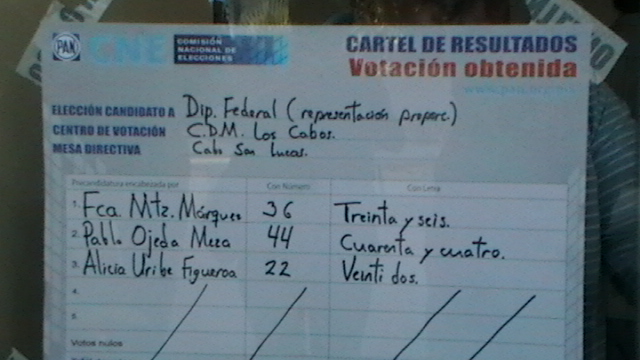 PAN CNE COMISIÓN NACIONAL DE ELECCIONES
CARTEL DE RESULTADOS
Votación obtenida
www.pan.org.mx
ELECCIÓN CANDIDATO A Dip. Federal (representación proporc.)
CENTRO DE VOTACIÓN C.D.M. Los Cabos.
MESA DIRECTIVA Cabo San Lucas.
Precandidatura encabezada por Con Número Con Letra
1. Fca. Mtz. Márquez 36 Treinta y seis.
2. Pablo Ojeda Meza 44 Cuarenta y cuatro.
3. Alicia Uribe Figueroa 22 Veinti dos.
4.
5.
Votos nulos